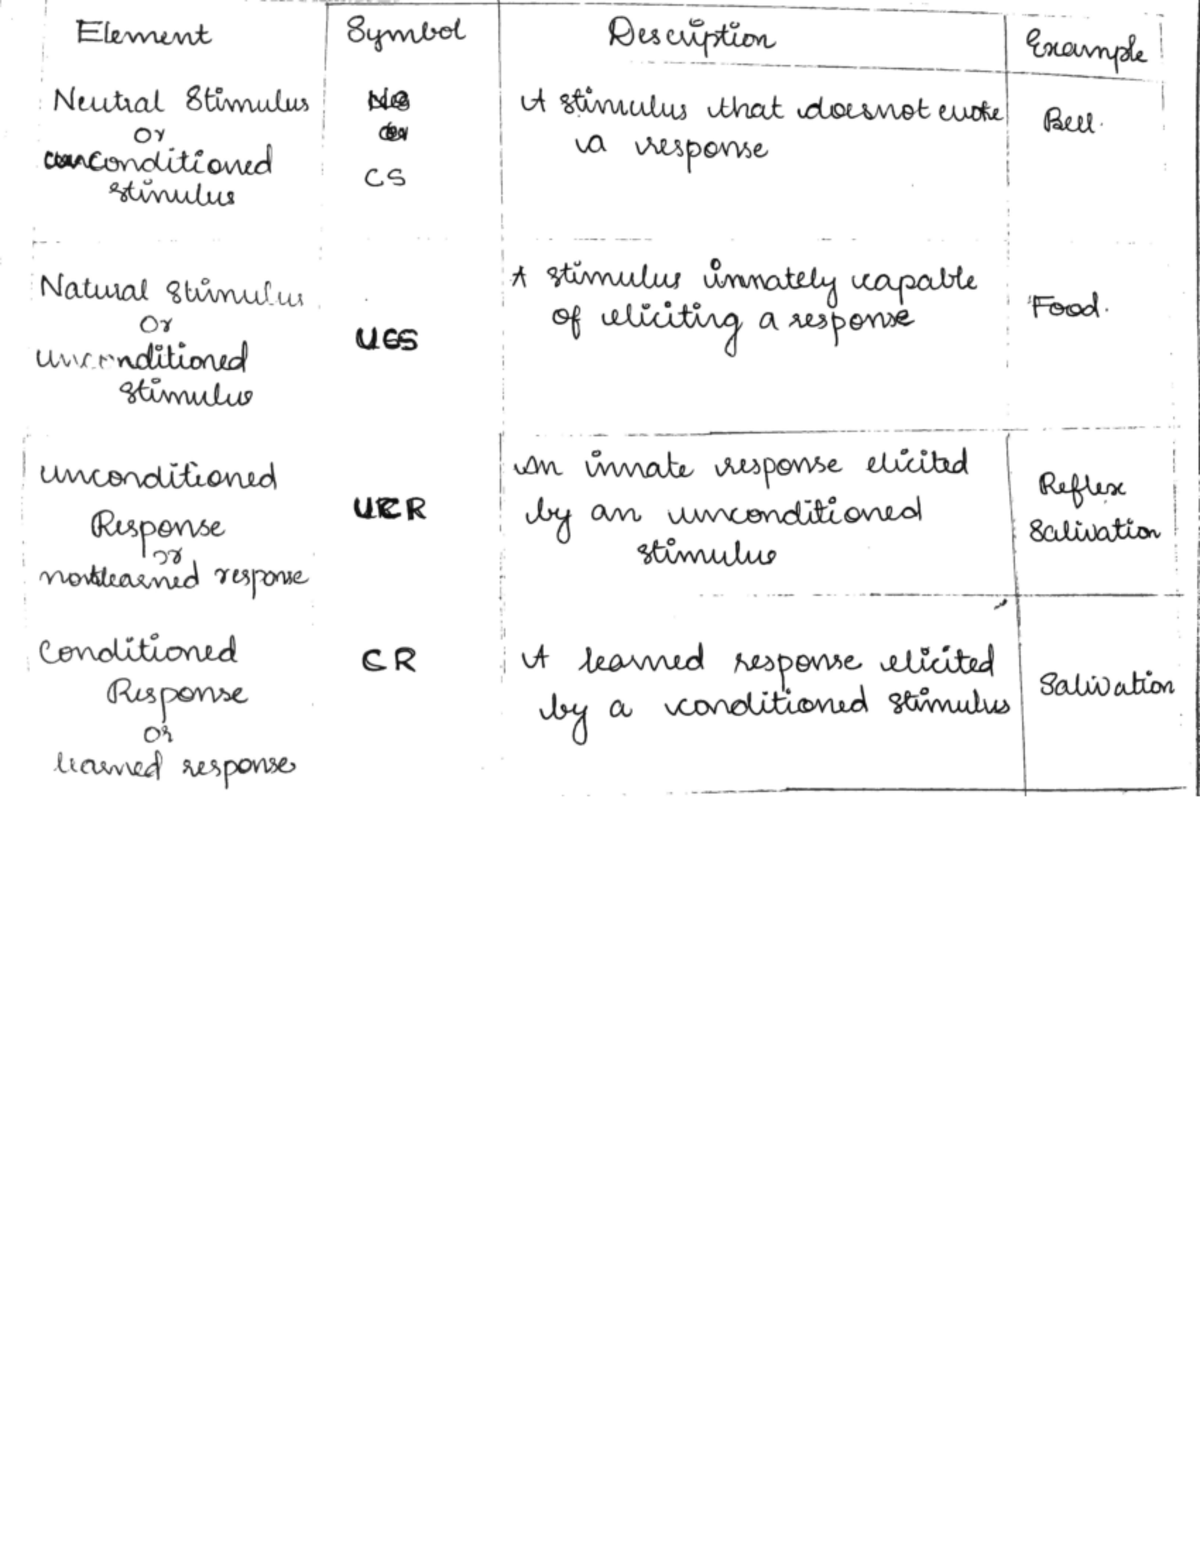 Element Symbol Description Example
Neutral Stimulus A stimulus that doesnot evoke Bell.
or a response
conditioned CS
stimulus
Natural Stimulus A stimulus innately capable Food.
or of eliciting a response
unconditioned UCS
stimulus
unconditioned An innate response elicited Reflex
Response UCR by an unconditioned Salivation
or stimulus
nonlearned response
Conditioned CR A learned response elicited Salivation
Response by a conditioned stimulus
or
learned response